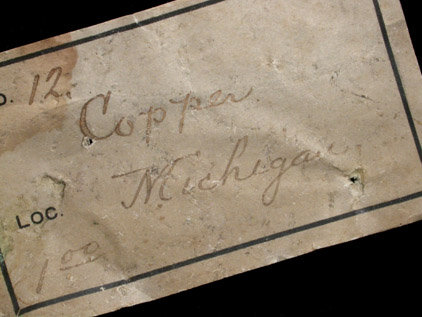 o. 12.
Copper
Michigan
LOC.
1.00